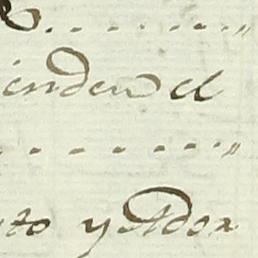 ienden el
to y Ador